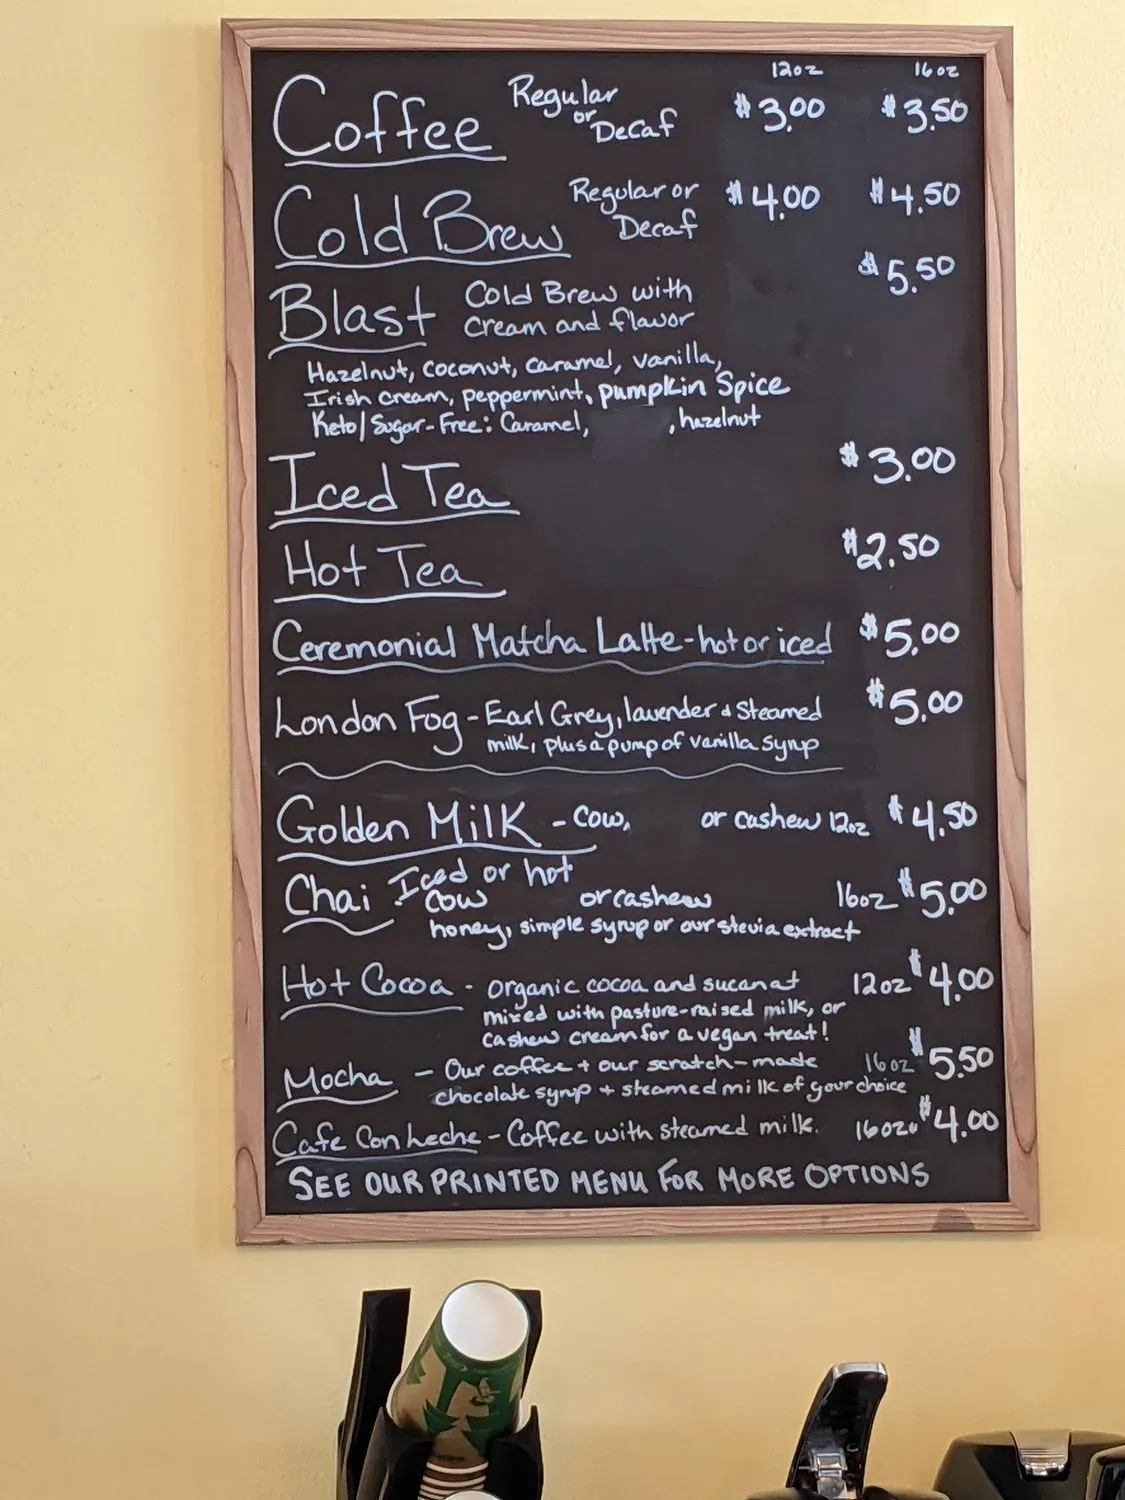 12oz 16oz
Coffee Regular or Decaf $3.00 $3.50
Cold Brew Regular or Decaf $4.00 $4.50
$5.50
Blast Cold Brew with
cream and flavor
Hazelnut, coconut, caramel, vanilla,
Irish cream, peppermint, pumpkin Spice
Keto/Sugar-Free: Caramel, , hazelnut
Iced Tea $3.00
Hot Tea $2.50
Ceremonial Matcha Latte - hot or iced $5.00
London Fog - Earl Grey, lavender & Steamed $5.00
milk, plus a pump of vanilla syrup
Golden Milk - cow, or cashew 12oz $4.50
Chai Iced or hot
cow or cashew 16oz $5.00
honey, simple syrup or our stevia extract
Hot Cocoa - organic cocoa and sucanat 12oz $4.00
mixed with pasture-raised milk, or
cashew cream for a vegan treat!
Mocha - Our coffee + our scratch-made 16oz $5.50
chocolate syrup + steamed milk of your choice
Cafe Con Leche - Coffee with steamed milk. 16oz $4.00
SEE OUR PRINTED MENU FOR MORE OPTIONS